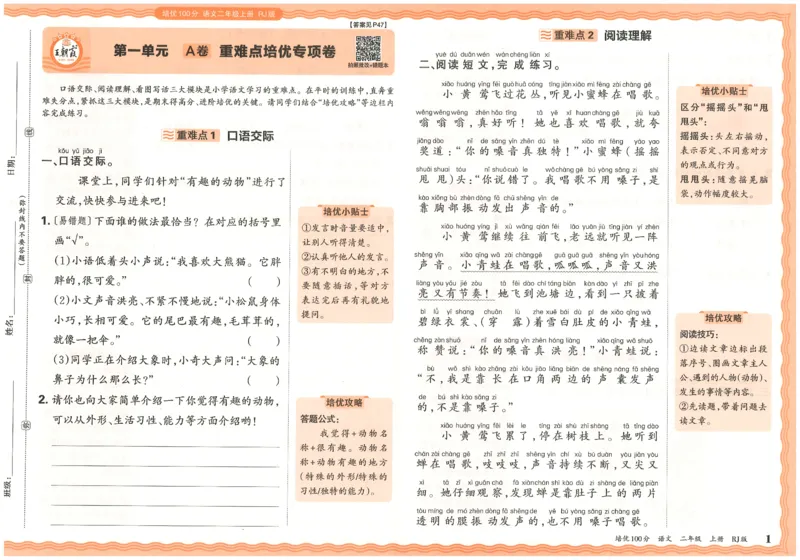 培优100分 语文二年级上册 RJ版
【答案见P47】
王朝霞
第一单元 A卷 重难点培优专项卷
拍照批改+错题本
口语交际、阅读理解、看图写话三大模块是小学语文学习的重难点。在平时的训练中,直奔重
难失分点,紧抓这三大模块,是期末得高分、进阶培优的关键。请同学们结合“培优攻略”等边栏内
容完成练习。
重难点1 口语交际
kǒu yǔ jiāo jì
一、口语交际。
课堂上,同学们针对“有趣的动物”进行了
交流,快快参与进来吧!
1.[易错题]下面谁的做法最恰当?在对应的括号里
画“√”。
(1)小语低着头小声说:“我喜欢大熊猫。它胖
胖的,很可爱。” ( )
(2)小文声音洪亮、不紧不慢地说:“小松鼠身体
小巧,长相可爱。它的尾巴最有趣,毛茸茸的,
就像一把伞。” ( )
(3)同学正在介绍大象时,小奇大声问:“大象的
鼻子为什么那么长?” ( )
2.请你也向大家简单介绍一下你觉得有趣的动物,
可以从外形、生活习性、能力等方面介绍哟!
培优小贴士
①发言时音量要适中,
让别人听得清楚。
②认真听他人的发言。
③有不明白的地方,不
要随意插话,等对方
表达完后再有礼貌地
提问。
培优攻略
答题公式:
我觉得+动物名
称+很有趣。动物名
称+动物有趣的地方
(特殊的外形/特殊的
习性/独特的能力)。
日期:
(弥封线内不要答题)
姓名:
班级:
重难点2 阅读理解
yuè dú duǎn wén wán chéng liàn xí
二、阅读短文,完成练习。
xiǎo huáng yīng fēi guò huā cóng tīng jiàn xiǎo mì fēng zài chàng gē
小黄莺飞过花丛,听见小蜜蜂在唱歌。
wēng wēng wēng zhēn hǎo tīng tā yě xǐ huan chàng gē jiù kuā
嗡嗡嗡,真好听!她也喜欢唱歌,就夸
jiǎng dào nǐ de sǎng yīn zhēn dú tè xiǎo mì fēng yáo yao
奖道:“你的嗓音真独特!”小蜜蜂(摇摇
shuǎi shuai tóu nǐ shuō cuò le wǒ chàng gē bú yòng sǎng zi shì
甩甩)头:“你说错了。我唱歌不用嗓子,是
kào xiōng bù zhèn dòng fā chū shēng yīn de
靠胸部振动发出声音的。”
xiǎo huáng yīng jì xù wǎng qián fēi lǎo yuǎn jiù tīng jiàn yí zhèn
小黄莺继续往前飞,老远就听见一阵
shēng yīn xiǎo qīng wā zài chàng gē guā guā guā shēng yīn yòu hóng
声音。小青蛙在唱歌,呱呱呱,声音又洪
liàng yòu yǒu jié zòu tā fēi dào chí táng biān kàn dào yì zhī pī zhe
亮又有节奏!她飞到池塘边,看到一只披着
bì lǜ yī shang chuān lù zhe xuě bái dù pí de xiǎo qīng wā
碧绿衣裳、(穿 露)着雪白肚皮的小青蛙,
chēng zàn shuō nǐ de sǎng yīn zhēn hóng liàng xiǎo qīng wā shuō
称赞说:“你的嗓音真洪亮!”小青蛙说:
bù wǒ shì kào zhǎng zài kǒu jiǎo liǎng biān de shēng náng fā shēng
“不,我是靠长在口角两边的声囊发声
de bú shì kào sǎng zi
的,不是靠嗓子。”
xiǎo huáng yīng fēi lèi le tíng zài shù zhī shàng tā tīng dào
小黄莺飞累了,停在树枝上。她听到
chán zài chàng gē zhī zhī zhī shēng yīn chí xù bú duàn yòu jiān yòu
蝉在唱歌,吱吱吱,声音持续不断,又尖又
xì tā zǐ xì guān chá fā xiàn chán shì kào dù zi shàng de liǎng piàn
细。她仔细观察,发现蝉是靠肚子上的两片
tòu míng de mó zhèn dòng fā shēng de yě bú yòng sǎng zi chàng gē
透明的膜振动发声的,也不用嗓子唱歌。
培优小贴士
区分“摇摇头”和“甩
甩头”:
摇摇头:头左右摇动,
表示否定、不同意对方
的观点或行为。
甩甩头:随意摇晃脑
袋,动作幅度较大。
培优攻略
阅读技巧:
①边读文章边标出段
落序号、圈画文章主人
公、遇到的人物(动物)、
发生的事情等内容。
②先读题,带着问题去
读文章。
培优100分 语文 二年级 上册 RJ版 1